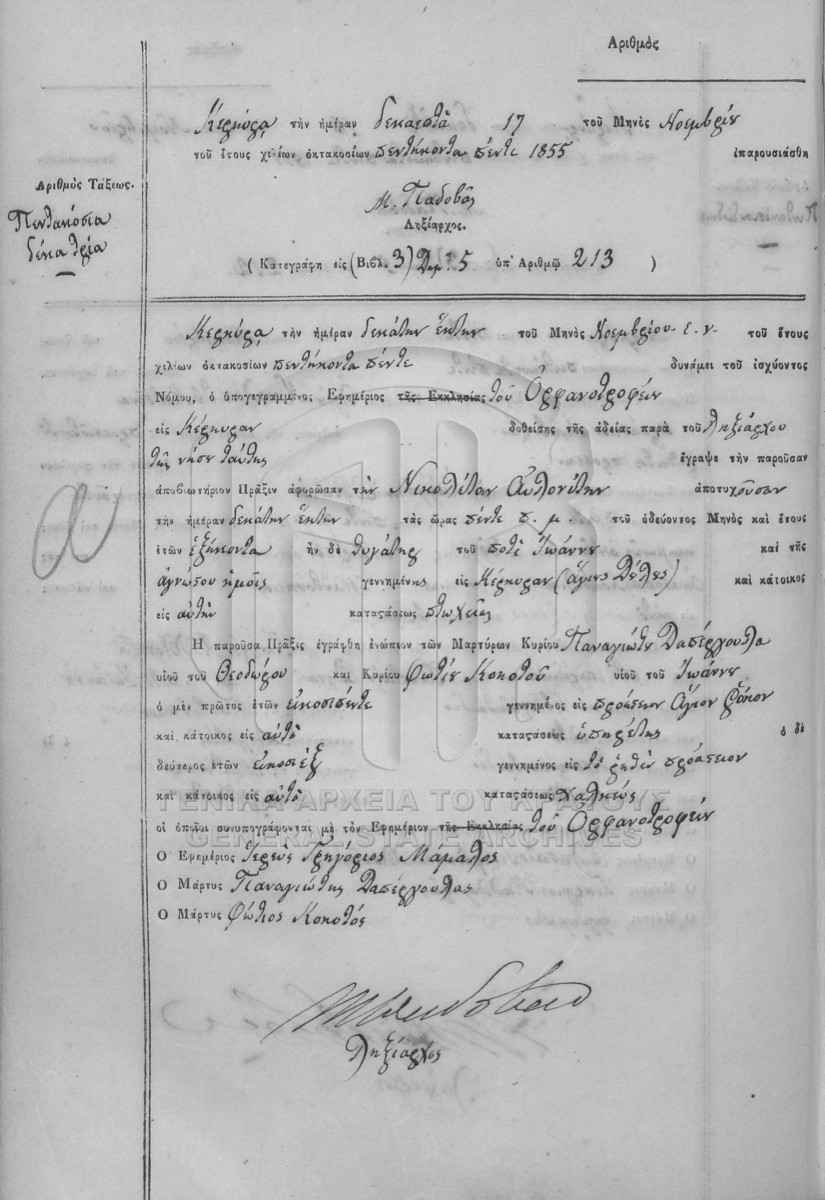 Ἀριθμὸς
Κερκύρᾳ τὴν ἡμέραν δεκαεπτὰ 17 τοῦ Μηνὸς Νοεμβρίου
τοῦ ἔτους χιλίων ὀκτακοσίων πεντήκοντα πέντε 1855 ἐπαρουσιάσθη
Ἀριθμὸς Τάξεως.
Πεντακόσια
δέκα τρία
Μ. Παδοβᾶς
Ληξίαρχος.
( Κατεγράφη εἰς (Βιβλ. 3) 5 ὑπ' Ἀριθμῷ 213 )
Κερκύρᾳ τὴν ἡμέραν δεκάτην ἕκτην τοῦ Μηνὸς Νοεμβρίου ε. ν. τοῦ ἔτους
χιλίων ὀκτακοσίων πεντήκοντα πέντε δυνάμει τοῦ ἰσχύοντος
Νόμου, ὁ ὑπογεγραμμένος Ἐφημέριος τῆς Ἐκκλησίας τοῦ Ὀρφανοτροφείου
εἰς Κέρκυραν δοθείσης τῆς ἀδείας παρὰ τοῦ Ληξιάρχου
τῆς νήσου ταύτης ἔγραψε τὴν παροῦσαν
ἀποβιωτήριον Πρᾶξιν ἀφορῶσαν τὴν Νικολέταν Αὐλονίτην ἀποτυχοῦσαν
τὴν ἡμέραν δεκάτην ἕκτην τὰς ὥρας πέντε π. μ. τοῦ ὁδεύοντος Μηνὸς καὶ ἔτους
ἐτῶν ἑξήκοντα ἦν δὲ θυγάτηρ τοῦ ποτὲ Ἰωάννου καὶ τῆς
ἀγνώστου ἡμῖν γεννημένης εἰς Κέρκυραν (ἁγίους Δέκα) καὶ κάτοικος
εἰς αὐτὴν καταστάσεως πτωχικῆς
Ἡ παροῦσα Πρᾶξις ἐγράφθη ἐνώπιον τῶν Μαρτύρων Κυρίου Παναγιώτου Δαπέργουλα
υἱοῦ τοῦ Θεοδώρου καὶ Κυρίου Φωτίου Κοκοτοῦ υἱοῦ τοῦ Ἰωάννου
ὁ μὲν πρῶτος ἐτῶν εἰκοσιπέντε γεννημένος εἰς προάστειον Ἅγιον Ῥόκον
καὶ κάτοικος εἰς αὐτὸ καταστάσεως ὑπηρέτης ὁ δὲ
δεύτερος ἐτῶν εἰκοσιὲξ γεννημένος εἰς τὸ ῥηθὲν προάστειον
καὶ κάτοικος εἰς αὐτὸ καταστάσεως χαλκεύς
οἱ ὁποῖοι συνυπογράφονται μὲ τὸν Ἐφημέριον τῆς Ἐκκλησίας τοῦ Ὀρφανοτροφείου
Ὁ Ἐφημέριος Ἱερεὺς Γρηγόριος Μάμαλος
Ὁ Μάρτυς Παναγιώτης Δαπέργουλας
Ὁ Μάρτυς Φώτιος Κοκοτός
Ληξίαρχος
ΓΕΝΙΚΑ ΑΡΧΕΙΑ ΤΟΥ ΚΡΑΤΟΥΣ
GENERAL STATE ARCHIVES